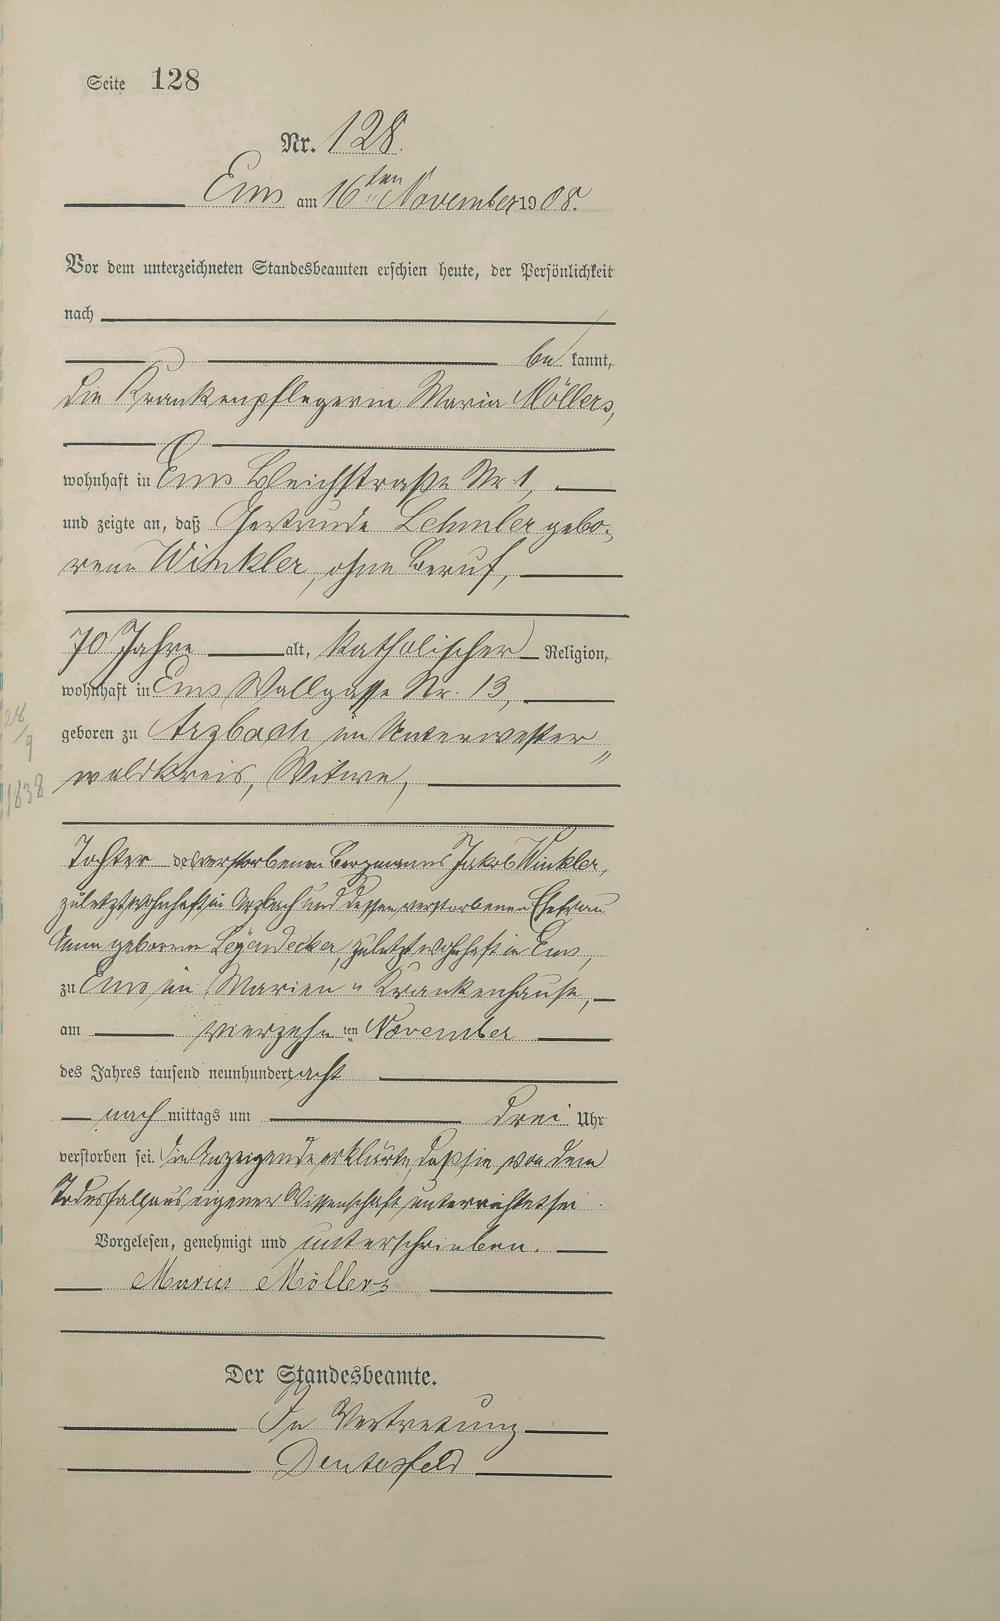 Seite 128
Nr. 128.
Ems am 16ten November 1908.
Vor dem unterzeichneten Standesbeamten erschien heute, der Persönlichkeit
nach
be kannt,
die Krankenpflegerin Maria Möllers,
wohnhaft in Ems Bleichstraße Nr. 1,
und zeigte an, daß Gertrude Lehmler gebo-
rene Winkler, ohne Beruf,
70 Jahre alt, katholischer Religion,
wohnhaft in Ems Wallgasse Nr. 13,
28/9
geboren zu Arzbach im Unterwester-
waldkreis, Witwe,
1838
Tochter des verstorbenen Bergmanns Jakob Winkler,
zuletzt wohnhaft in Arzbach und dessen verstorbenen Ehefrau
Anna geborene Leyendecker, zuletzt wohnhaft in Ems,
zu Ems im Marien-Krankenhause,
am vierzehnten November
des Jahres tausend neunhundert acht
nach mittags um drei Uhr
verstorben sei. Die Anzeigende erklärte, daß sie von dem
Todesfall aus eigener Wissenschaft unterrichtet sei.
Vorgelesen, genehmigt und unterschrieben.
Maria Möllers
Der Standesbeamte.
In Vertretung